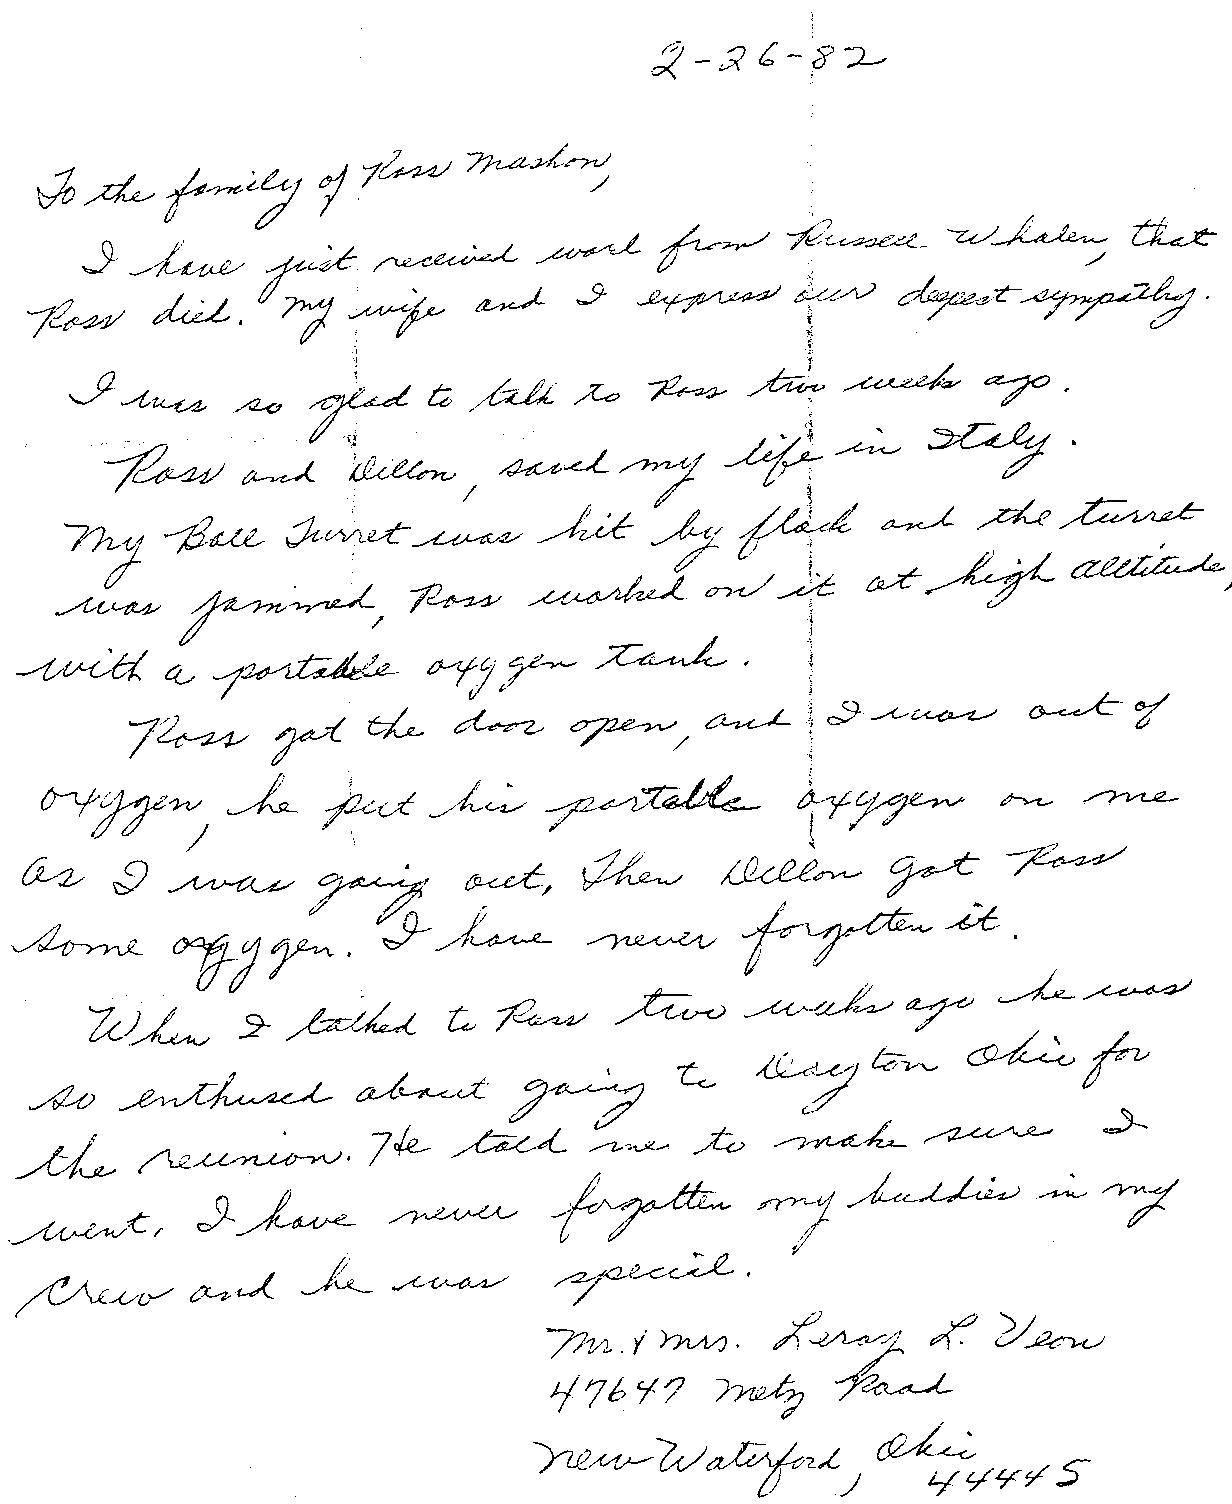 2-26-82
To the family of Ross Mashon,
I have just received word from Russell Whalen, that
Ross died. My wife and I express our deepest sympathy.
I was so glad to talk to Ross two weeks ago.
Ross and Dillon, saved my life in Italy.
My Ball Turret was hit by flack and the turret
was jammed, Ross worked on it at high alltitude,
with a portable oxygen tank.
Ross got the door open, and I was out of
oxygen, he put his portable oxygen on me
as I was going out. Then Dillon got Ross
some oxygen. I have never forgotten it.
When I talked to Ross two weeks ago he was
so enthused about going to Dayton Ohio for
the reunion. He told me to make sure I
went. I have never forgotten my buddies in my
crew and he was special.
Mr. & Mrs. Leroy L. Veon
47647 Metz Road
New Waterford, Ohio
44445